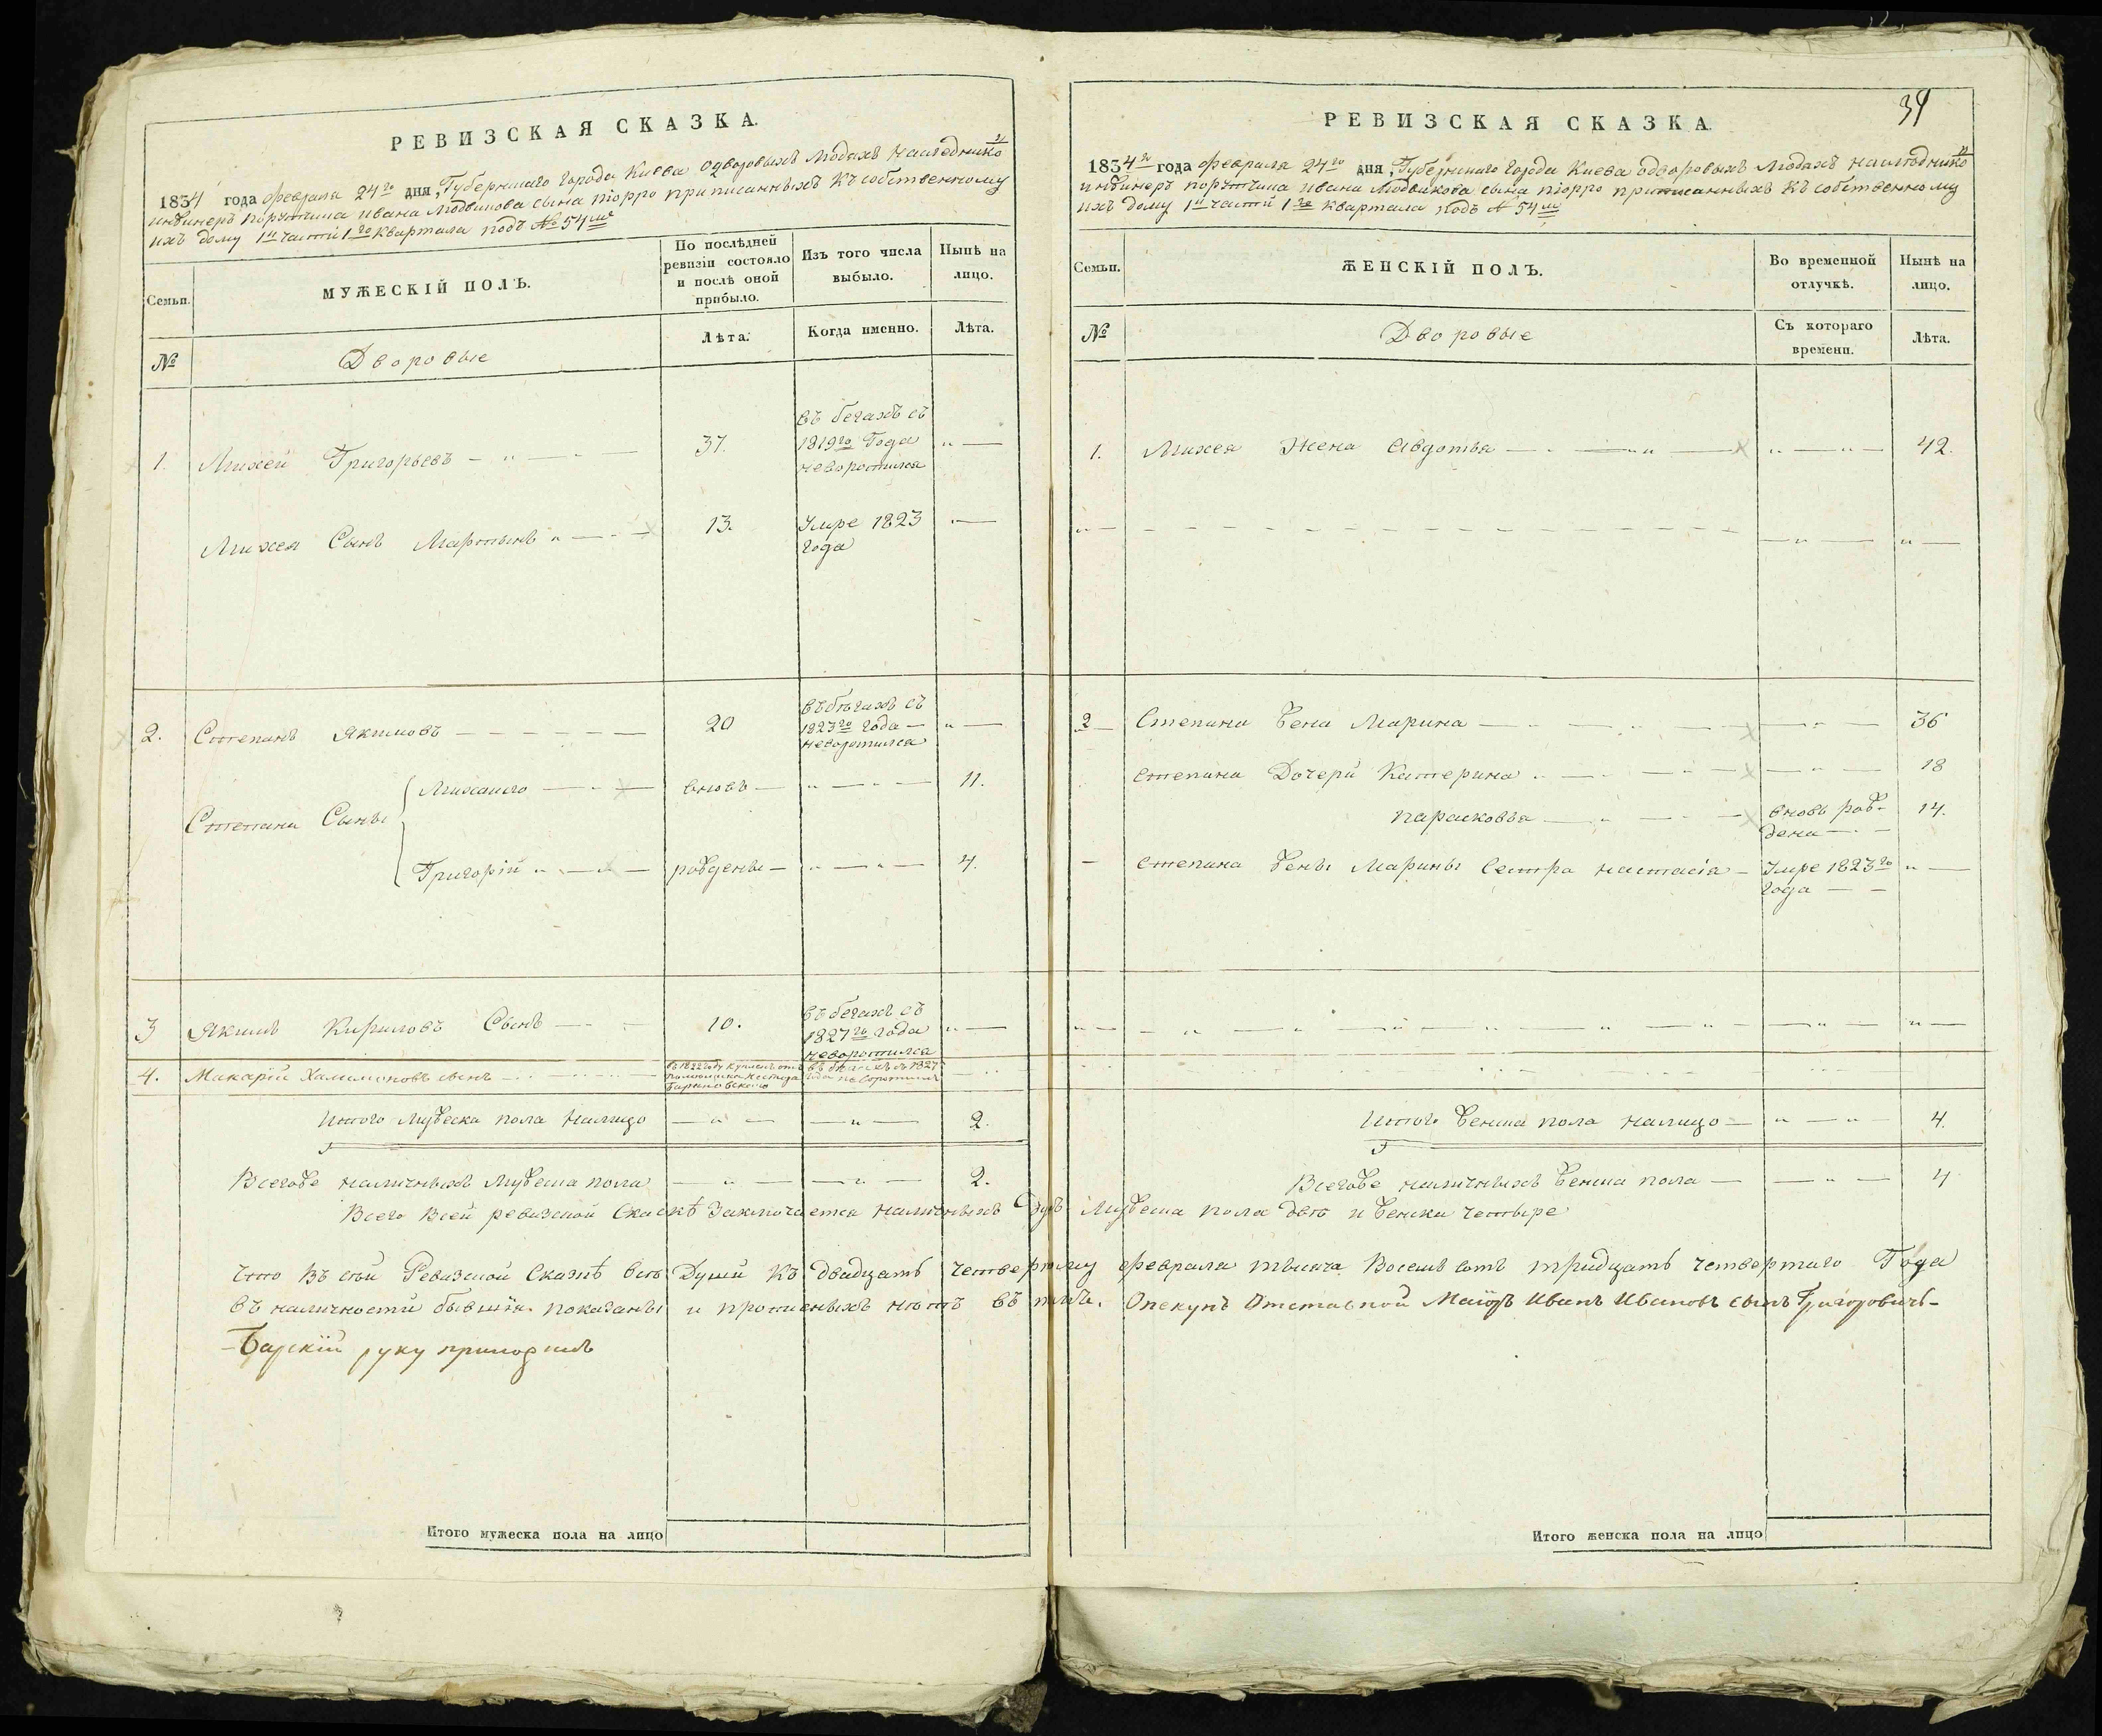 РЕВИЗСКАЯ СКАЗКА.
1834 года февраля 24го дня, Губернскаго Города Киева одворовыхъ людахъ наследнико
инженеръ порутчика ивана людвикова сына пiорро приписанныхъ къ собственному
ихъ дому 1й части 1го квартала подъ № 54м
Семьи.
МУЖЕСКІЙ ПОЛЪ.
По послѣдней
ревизіи состояло
и послѣ оной
прибыло.
Изъ того числа
выбыло.
Нынѣ на
лицо.
№
Дворовые
Лѣта.
Когда именно.
Лѣта.
1. Михей Григорьевъ 37. въ бегахъ съ
1819го Года
неворотился
Михея Сынъ Мартынъ 13. Умре 1823
года
2. Степанъ Якимовъ 20 въ бѣгахъ съ
1823го года
неворотился
Степана Сыны
Михайло вновь 11.
Григорій рождены 4.
3 Якимъ Кириловъ Сынъ 10. въ бегахъ съ
1827го года
неворотился
4. Макарій Халимоновъ сынъ въ 1822 году купленъ отъ
въ бѣгахъ съ 1827
года не воротился
Итого Мужеска пола налицо 2.
Всегоже наличныхъ Мужеска пола 2.
РЕВИЗСКАЯ СКАЗКА.
39
1834го года февраля 24го дня, Губернскаго Города Киева одворовыхъ людахъ наследнико
инженеръ порутчика ивана людвикова сына пiорро приписанныхъ къ собственному
ихъ дому 1й части 1го квартала подъ № 54м
Семьи.
ЖЕНСКІЙ ПОЛЪ.
Во временной
отлучкѣ.
Нынѣ на
лицо.
№
Дворовые
Съ котораго
времени.
Лѣта.
1. Михея Жена Авдотья 42.
2 Степана Жена Марина 36
Степана Дочери Катерина 18
Парасковья вновь рож-
дена 14.
Степана Жены Марины Сестра настасія Умре 1823го
года
Итого Женска пола налицо 4.
Всегоже наличныхъ Женска пола 4
Всего Всей ревизской Скаскѣ Заключается наличныхъ Душъ Мужеска пола двѣ и Женска четыре
Что Въ сей Ревизской Сказкѣ всѣ Души Къ двадцать четвертому февраля тысяча Восемь сотъ тридцать четвертаго Года
въ наличности бывшія показаны и прописныхъ нѣтъ въ томъ. Опекунъ Отставной Маіоръ Иванъ Ивановъ сынъ Григоровичъ-
-Барскій руку приложилъ
Итого мужеска пола на лицо
Итого женска пола на лицо